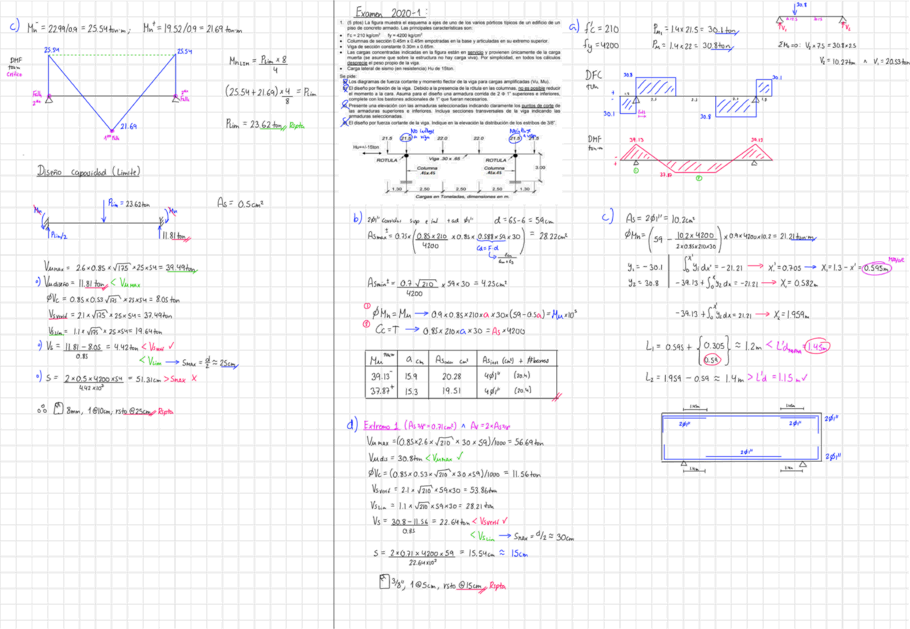 c) Mn⁻ = 22.99/0.9 = 25.54 ton·m ; Mn⁺ = 19.52/0.9 = 21.69 ton·m
25.54
25.54
DMF
ton·m
21.69
M_MLIM = PLim × 8 / 4
(25.54 + 21.69) × 4/8 = PLim
PLim = 23.62 ton Rpta
Diseño capacidad (Límite)
Mn
PLim = 23.62 ton
Mn
As = 0.5cm²
PLim/2
11.81 ton
Vumax = 2.6 × 0.85 × √175 × 25 × 54 = 39.49 ton
•) Vudiseño = 11.81 ton < Vumax
ØVc = 0.85 × 0.53 √175 × 25 × 54 = 8.05 ton
= 2.1 × √175 × 25 × 54 = 37.49 ton
Vslim = 1.1 × √175 × 25 × 54 = 19.64 ton
•) Vs = 11.81 - 8.05 / 0.85 = 4.42 ton ✓
< Vslim → Smax = d/2 ≈ 25cm
•) S = 2 × 0.5 × 4200 × 54 / 4.42 × 10³ = 51.31 cm > Smax X
∴ 8mm, 1@10cm, rsto @25cm Rpta
Examen 2020-1 :
1. (5 ptos) La figura muestra el esquema a ejes de uno de los varios pórticos típicos de un edificio de un piso de concreto armado. Las principales características son:
• f'c = 210 kg/cm² fy = 4200 kg/cm²
• Columnas de sección 0.45m x 0.45m empotradas en la base y articuladas en su extremo superior.
• Viga de sección constante 0.30m x 0.65m.
• Las cargas concentradas indicadas en la figura están en servicio y provienen únicamente de la carga muerta (se asume que sobre la estructura no hay carga viva). Por simplicidad, en todos los cálculos desprecie el peso propio de la viga.
• Carga lateral de sismo (en resistencia) Hu de 15ton.
Se pide:
Los diagramas de fuerza cortante y momento flector de la viga para cargas amplificadas (Vu, Mu).
El diseño por flexión de la viga. Debido a la presencia de la rótula en las columnas, no es posible reducir el momento a la cara. Asuma para el diseño una armadura corrida de 2 Φ 1" superiores e inferiores, complete con los bastones adicionales de 1" que fueran necesarios.
Presente una elevación con las armaduras seleccionadas indicando claramente los puntos de corte de las armaduras superiores e inferiores. Incluya secciones transversales de la viga indicando las armaduras seleccionadas.
El diseño por fuerza cortante de la viga. Indique en la elevación la distribución de los estribos de 3/8".
21.5
21.5
22.0
22.0
21.5
21.5
Hu=+/-15ton
ROTULA
Viga .30 x .65
ROTULA
Columna
.45x.45
Columna
.45x.45
3.00
1.00
2.50
2.50
2.50
1.00
Cargas en Toneladas, dimensiones en m.
b) 2Ø1" corridas sup e inf. d = 65-6 = 59cm
Asmax = 0.75 × (0.85×210 / 4200 × 0.85 × 0.588×59×30) = 28.22cm²
Asmin = 0.7 √210 / 4200 × 59 × 30 = 4.23cm²
① ØMn = Mu → 0.9×0.85×210×a×30×(59-0.5a) = Mu×10⁵
② Cc = T → 0.85×210×a×30 = As×4200
Mu ton·m | a cm | Asreq cm² | Ascol (cm²) + #fierros
39.13⁻ | 15.9 | 20.28 | 4Ø1" (20.4)
37.87⁺ | 15.3 | 19.51 | 4Ø1" (20.4)
d) Extremo 1 (As 3/8" = 0.71cm²) ∧ Av = 2×As
Vumax = (0.85×2.6×√210 × 30 × 59)/1000 = 56.69 ton
Vudis = 30.8 ton < Vumax ✓
ØVc = (0.85×0.53×√210 × 30×59)/1000 = 11.56 ton
= 2.1 × √210 × 59×30 = 53.86 ton
Vslim = 1.1 × √210 × 59×30 = 28.21 ton
Vs = 30.8 - 11.56 / 0.85 = 22.64 ton ✓
< Vslim → Smax = d/2 ≈ 30cm
S = 2×0.71×4200×59 / 22.64×10³ = 15.54cm ≈ 15cm
3/8", 1@5cm, rsto @15cm Rpta
a) f'c = 210
fy = 4200
Pu₁ = 1.4×21.5 = 30.1 ton
Pu₂ = 1.4×22 = 30.8 ton
30.8
V₁
V₂
V₂×7.5 = 30.8×2.5
V₂ = 10.27 ton ∧ V₁ = 20.53 ton
DFC
ton
30.8
30.1
30.8
30.1
DMF
ton·m
39.13
39.13
37.87
①
②
c) As = 2Ø1" = 10.2cm²
ØMn = (59 - 10.2×4200 / 2×0.85×210×30) × 0.9×4200×10.2 = 21.21 ton·m
y₁ = -30.1
∫₀ˣ' y₁ dx' = -21.21 → x₁' = 0.705 → x₁ = 1.3 - x' = 0.595m
MAYOR
y₂ = 30.8
-39.13 + ∫₀ˣ' y₂ dx = -21.21 → x₂' = 0.582m
-39.13 + ∫₀ˣ' y₂ dx = 21.21 → x₂' = 1.959m
L₁ = 0.595 + {0.305 0.59} ≈ 1.2m < L'd = 1.45m
L₂ = 1.959 - 0.59 ≈ 1.4m > L'd = 1.15m ✓
1.45m
1.45m
2Ø1"
2Ø1"
2Ø1"
2Ø1"
2Ø1"